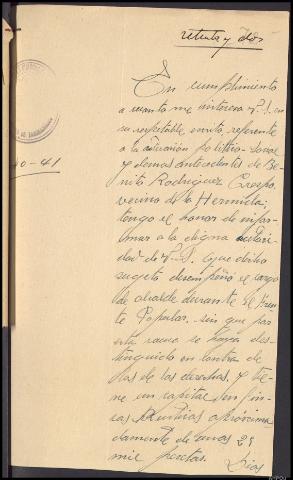 setenta y dos
40-41
En cumplimiento
a cuanto me interesa V.S. en
su respetable escrito, referente
a la actuación político-social
y demas antecedentes de Be-
nito Rodriguez Crespo,
vecino de la Hermida;
tengo el honor de infor-
mar a la digna autori-
dad de V.S. que dicho
sugeto desempeñó el cargo
de alcalde durante el Fren-
te Popular, sin que por
esta causa se haya dis-
tinguido en contra de
los de las derechas, y tie-
ne un capital en fin-
cas Rusticas aproxima-
damente de unas 25
mil pesetas. Dios